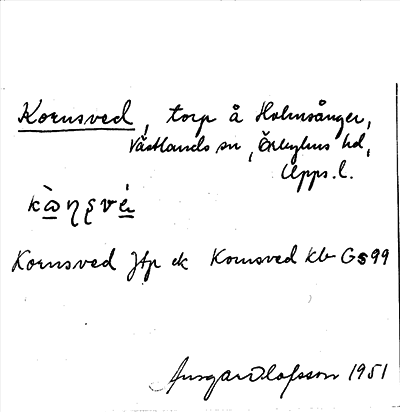 Kornsved, torp å Holmsånger,
Västlands sn, Örbyhus hd,
Upps. l.
Kornsved Jfp ek Kornsved kb GS99
Ansgar Olofsson 1951